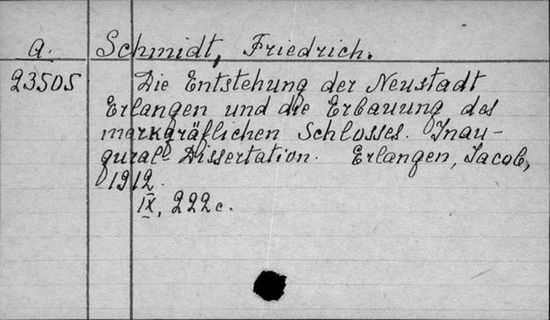 a. Schmidt, Friedrich.
23505 Die Entstehung der Neustadt
Erlangen und die Erbauung des
markgräflichen Schlosses. Inau-
gural-Dissertation. Erlangen, Jacob,
1912.
IX, 222c.